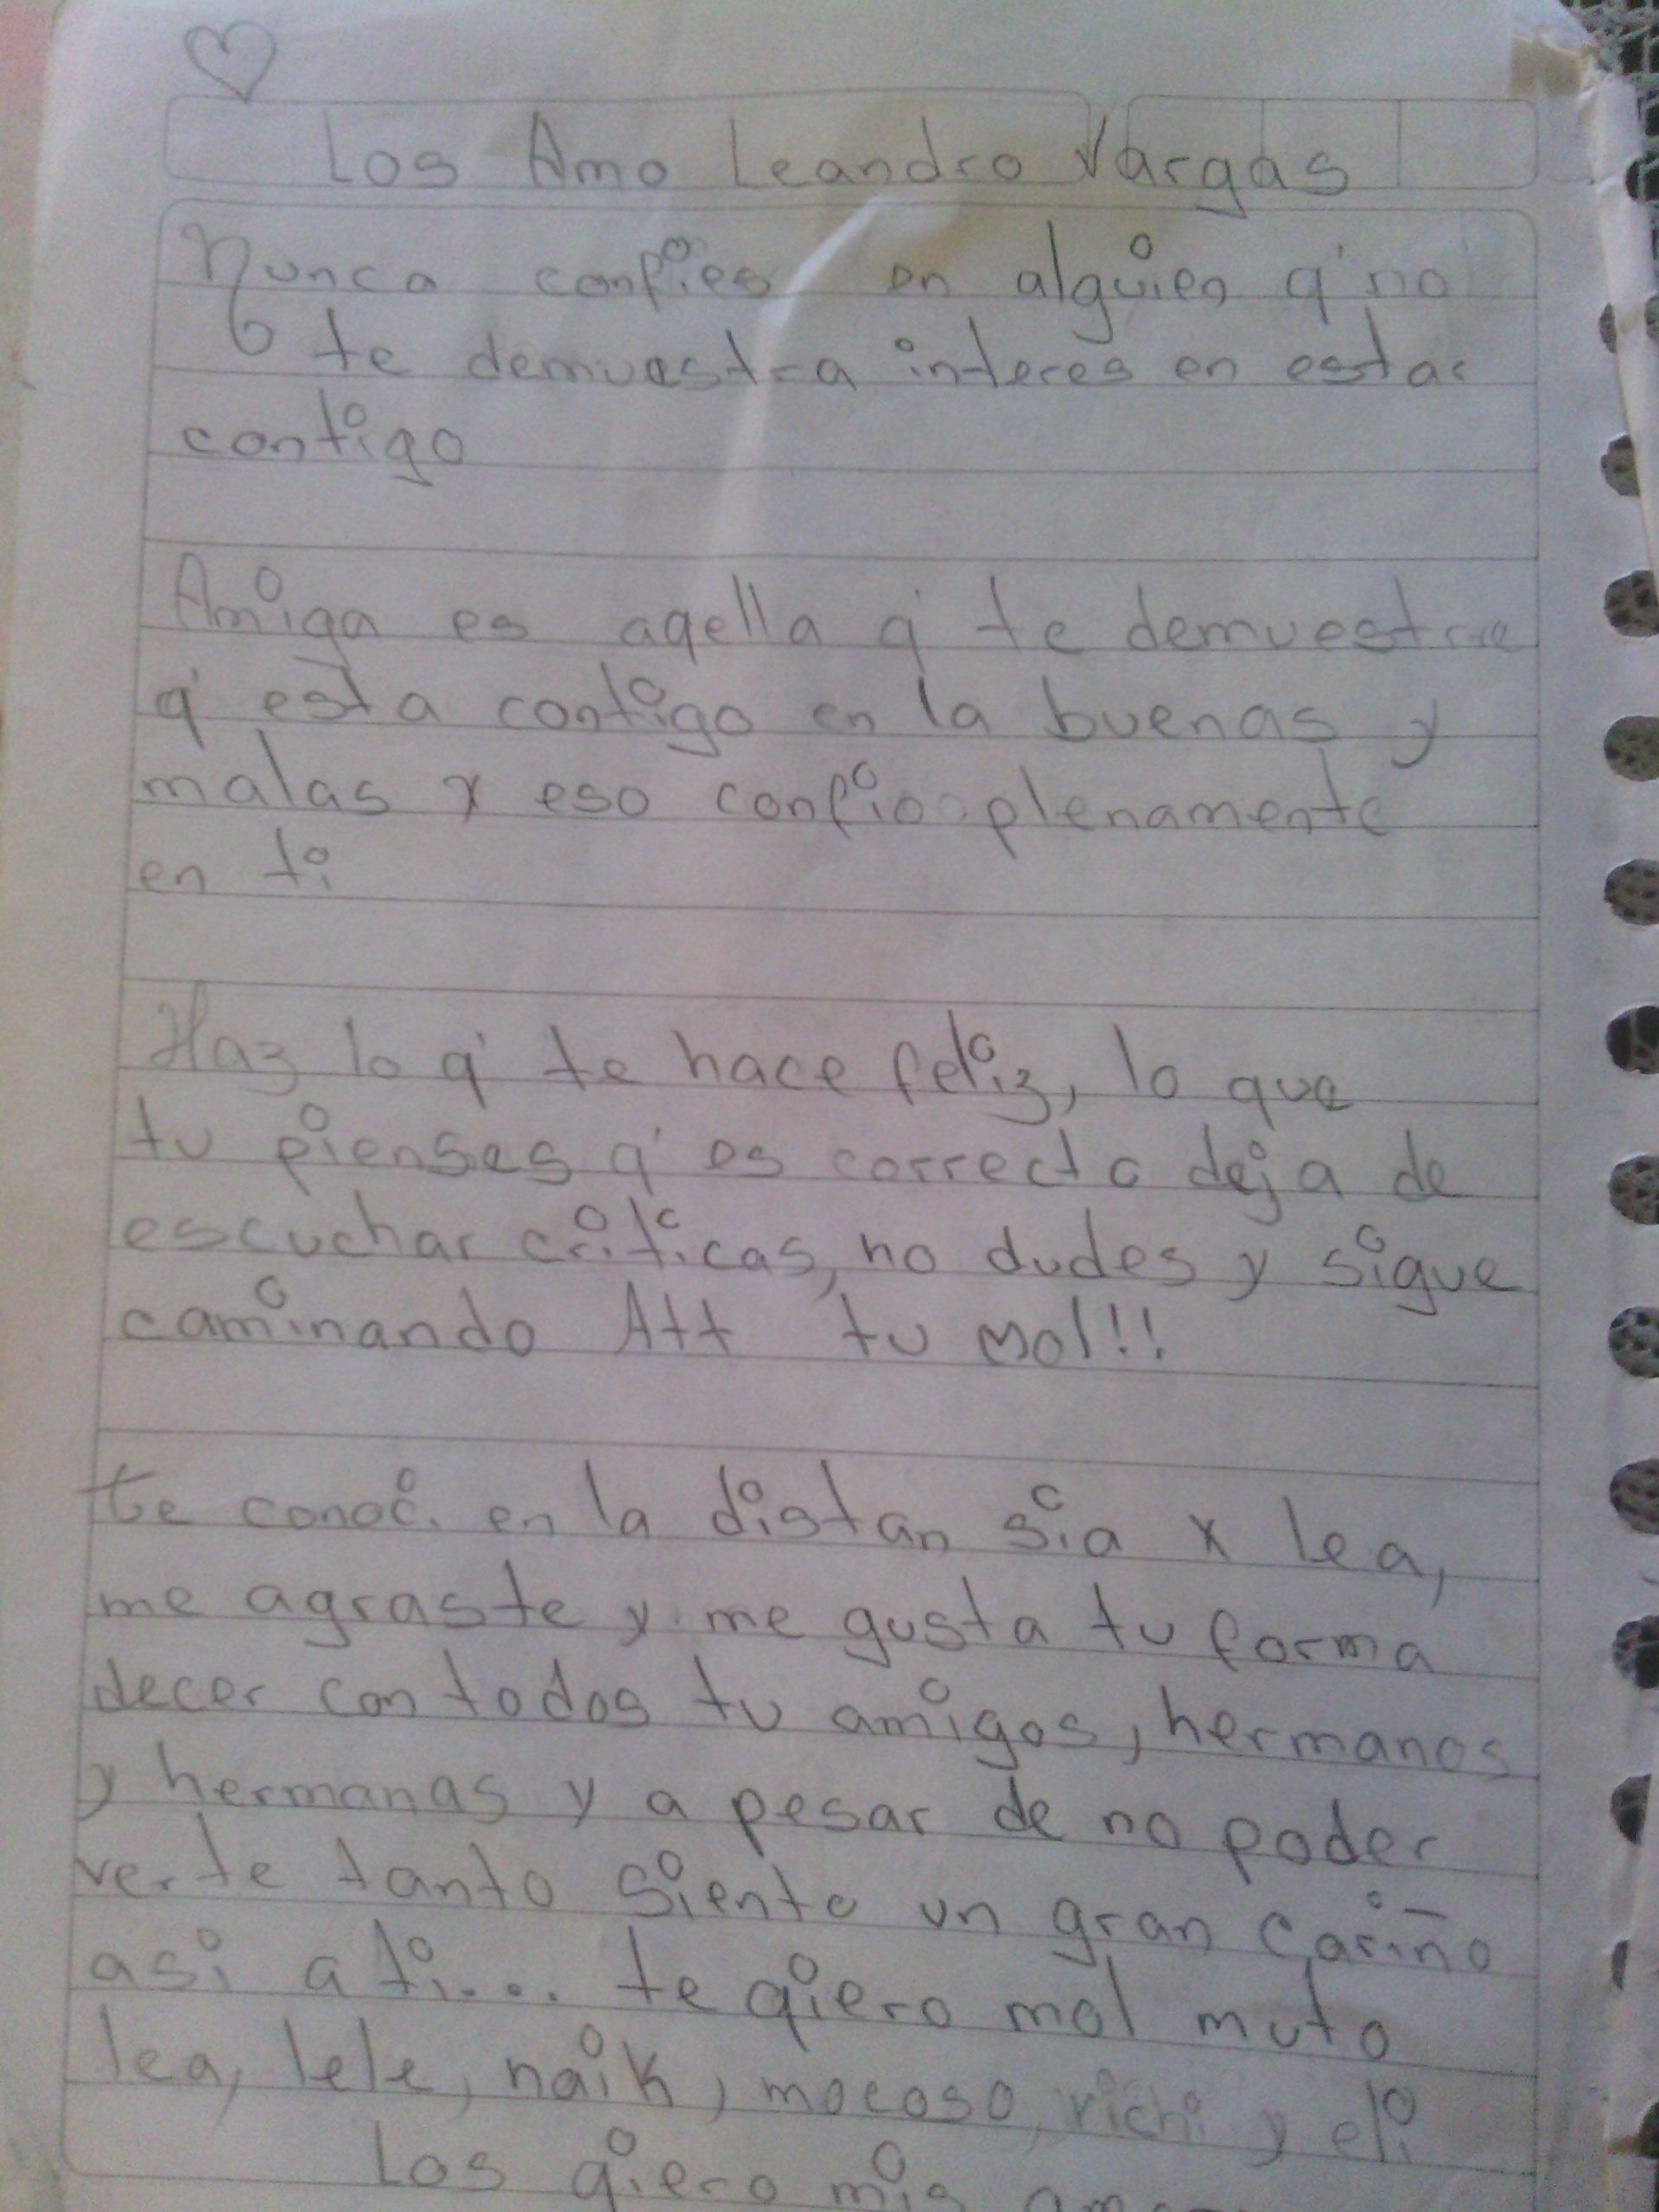 Los Amo Leandro Vargas
Nunca confies en alguien q' no
te demuestra interes en estar
contigo
Amiga es aqella q' te demuestra
q' esta contigo en la buenas y
malas x eso confio plenamente
en ti
Haz lo q' te hace feliz, lo que
tu pienses q' es correcto deja de
escuchar criticas, no dudes y sigue
caminando Att tu mol!!
te conoci en la distan sia x lea,
me agraste y me gusta tu forma
decer con todos tu amigos, hermanos
y hermanas y a pesar de no poder
verte tanto siento un gran cariño
asi a ti.... te qiero mol muto
lea, lele, naik, mocoso, richi y eli
Los qiero mis